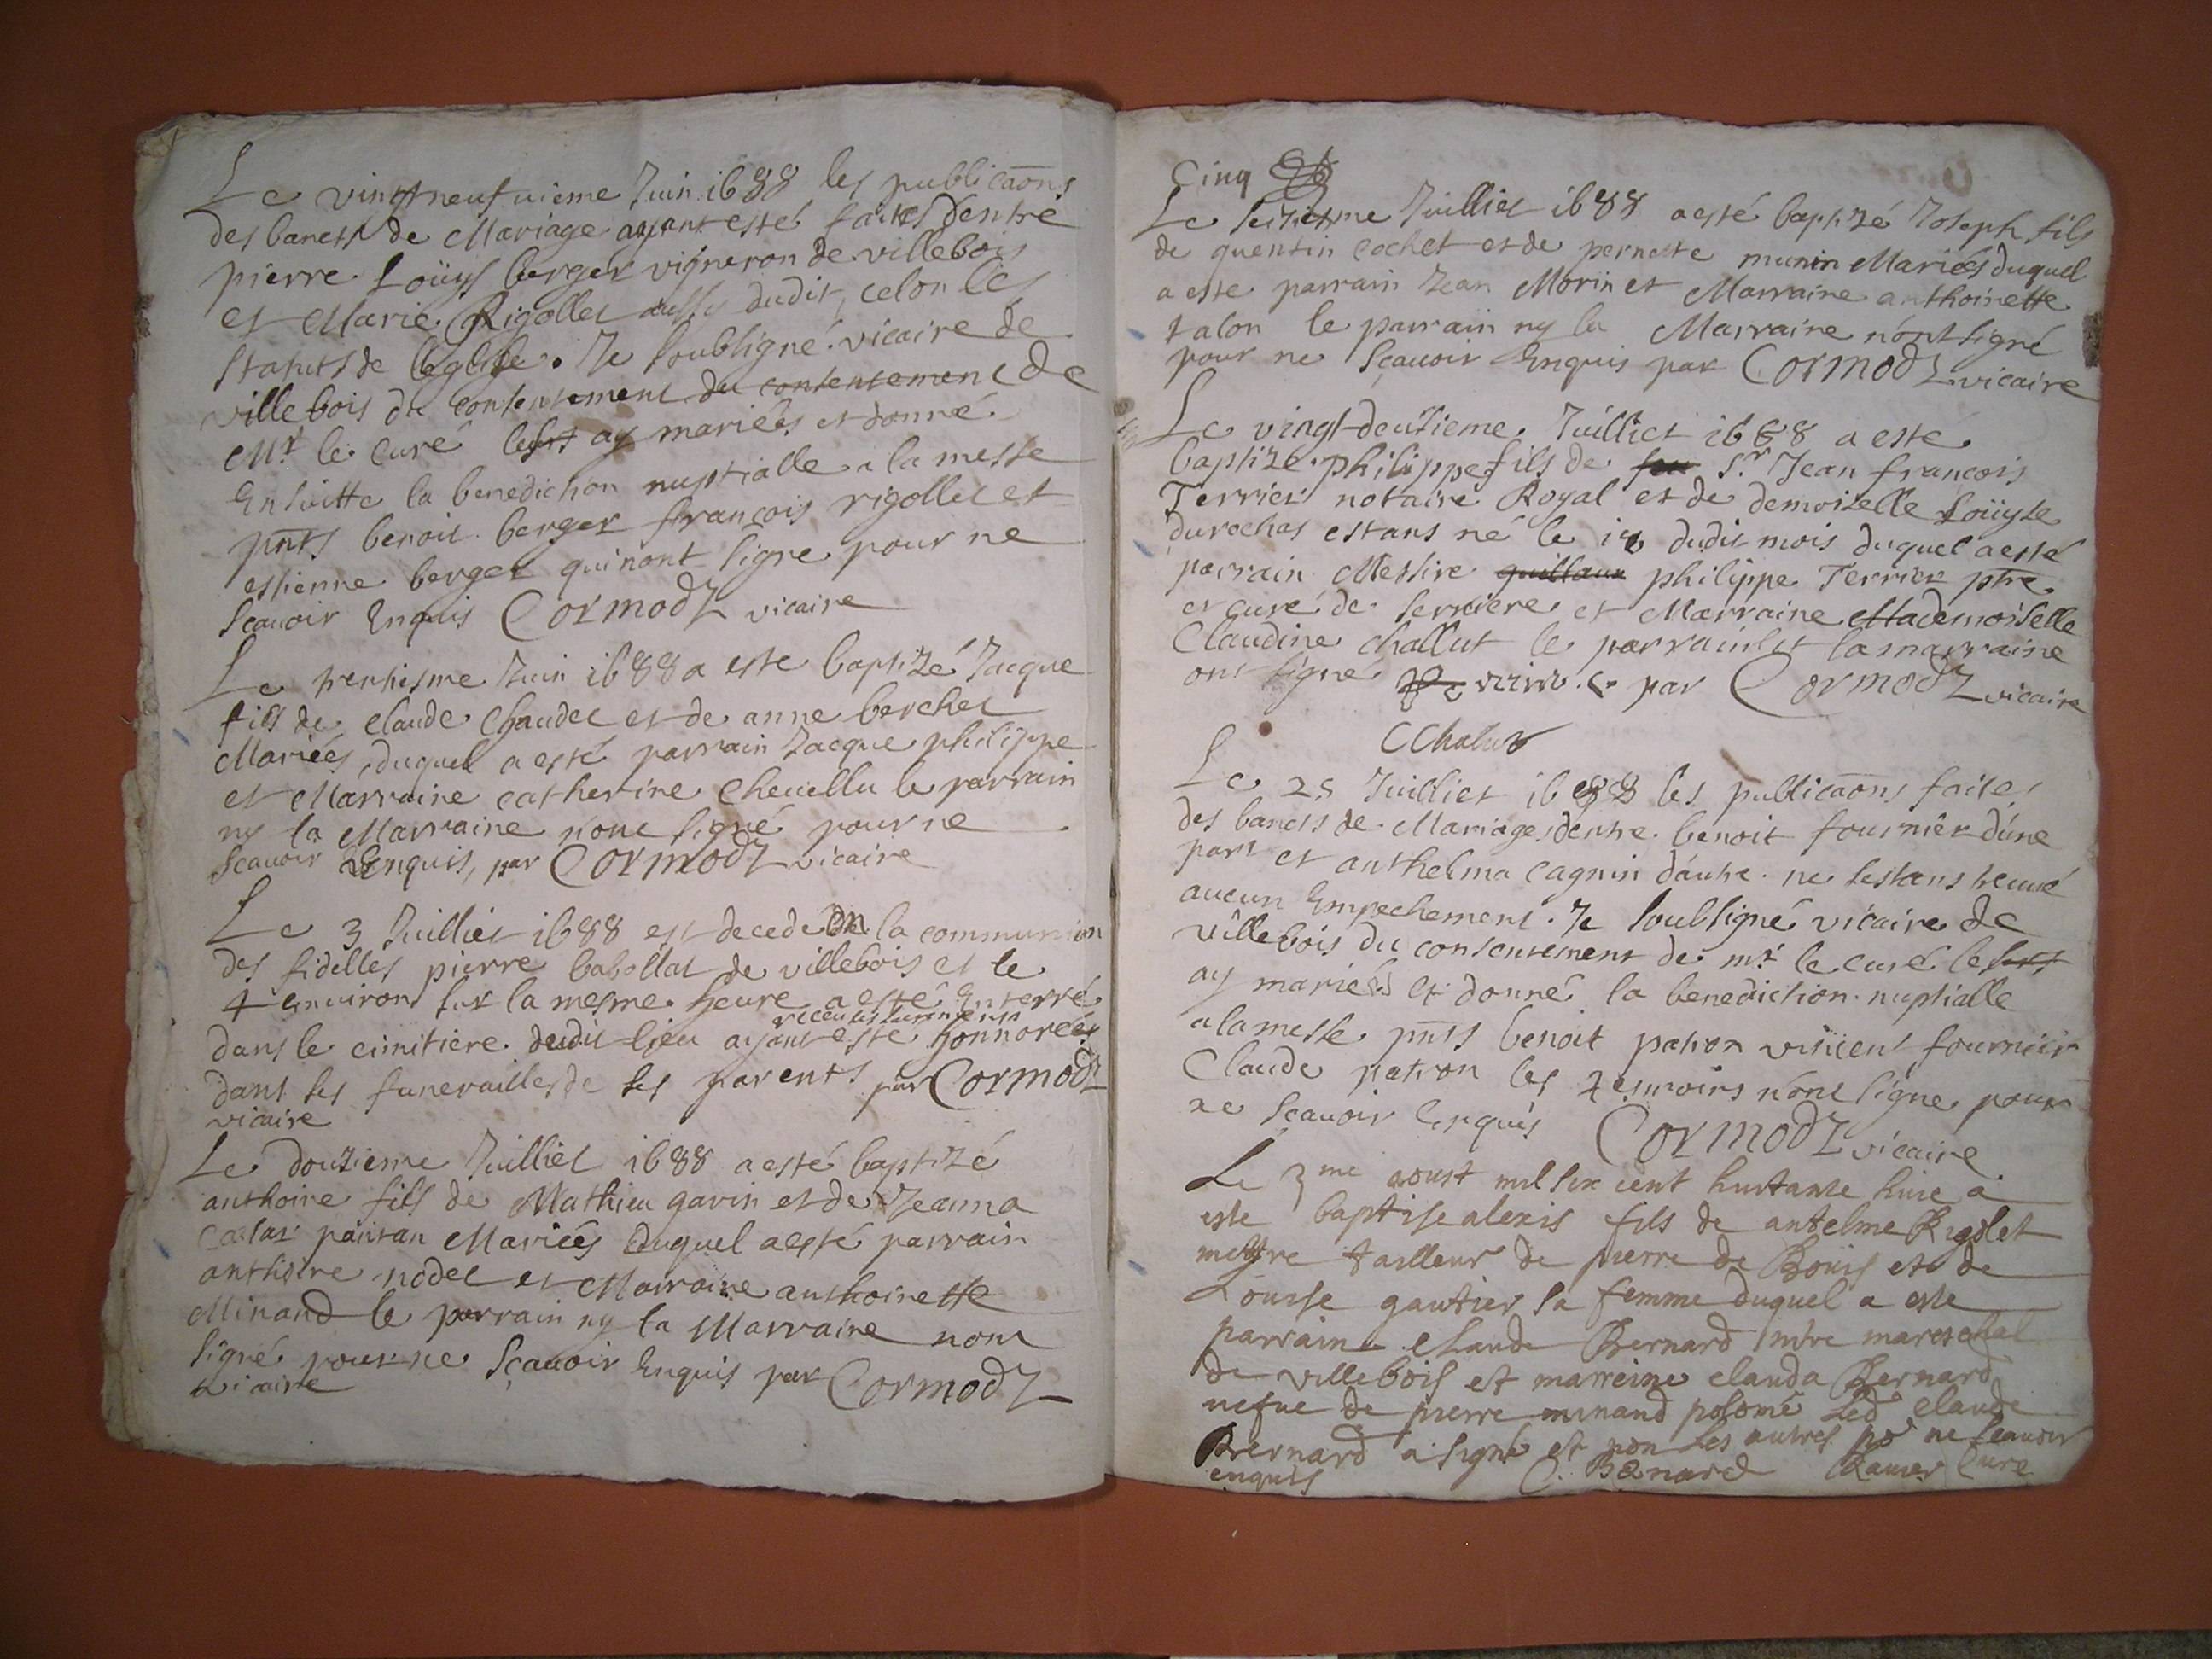 Le vingtneufuieme Juin 1688 les publicaons
des bancts de Mariage ayant esté faites dentre
pierre Loüys berger vigneron de villebois
et Marie Rigollet aussy dudit, celon les
statuts de leglise. Je soubsigné vicaire de
villebois du consentement du consentement de
Mr le curé les ay mariées et donné
Ensuitte la benediction nuptialle a la messe
pnts benoit berger françois rigollet et
estienne berger qui nont signe pour ne
scauoir Enquis Cormodz vicaire
Le trentiesme Juin 1688 a este baptizé Jacque
fils de claude Chaudet et de anne berchet
Mariées, duquel a esté parrain Jacque philippe
et Marraine catherine cheuellu le parrain
ny la Marraine n'ont signé pour ne
scauoir Enquis, par Cormodz vicaire
Le 3 Juilliet 1688 est decede En la communion
des fidelles pierre babollat de villebois et le
4 enuiron sur la mesme heure a esté Enterré
dans le cimitiere dudit lieu ayant esté honnorées
dans ses funerailles de ses parents par Cormodz
vicaire
Le douzieme Juilliet 1688 a esté baptizé
anthoine fils de Mathieu gavin et de Jeanna
Mariées Duquel a esté parrain
anthoine nodet et Marraine anthoinette
Minand le parrain ny la Marraine nont
signé pour ne sçauoir Enquis par Cormodz
vicaire
Cinq
Le seiziesme Juilliet 1688 a esté baptizé Joseph fils
de quentin cochet et de pernette munin Mariées duquel
a este parrain Jean Morin et Marraine anthoinette
talon le parrain ny la Marraine n'ont signé
pour ne sçauoir Enquis par Cormodz vicaire
Le vingt-deusieme Juilliet 1688 a esté
baptizé philippe fils de feu Sr Jean françois
Terrier notaire Royal et de demoizelle Loüyse
durochas estans né le dudit mois duquel a esté
parrain Messire guillaun philippe Terrier ptre
et curé de serriere et Marraine Mademoiselle
Claudine challut le parrain et la marraine
ont signé par Cormodz vicaire
CChalut
Le 25 Juilliet 1688 les publicaons faites
des bancts de Mariage dentre benoit fournier d'úne
part et anthelma cagnin d'autre ne sestans treuué
aucun Empechement. Je soubsigné vicaire de
villebois du consentement de mr le curé les
ay mariéés et donné la benediction nuptialle
a la messe pnts benoit patron vincent fournier
Claude patron les tesmoins n'ont signe pour
ne sçauoir Enquis Cormodz vicaire
Le 3me aoust mil six cent huitante huit a
este baptise alexis fils de antelme Rigolet
mestre tailleur de pierre de Bouis et de
Louise gautier sa femme duquel a este
parrain claude Bernard mtre mareschal
de villebois et marreine clauda Bernard
uefue de pierre minand Led claude
Bernard a signé et non les autres po ne scauoir
enquis C. Bernard curé